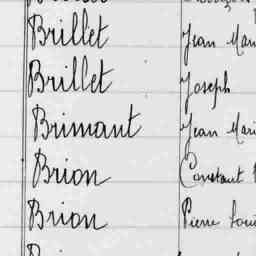 Brillet Jean Mari
Brillet Joseph
Brimant Jean Mari
Brion Constant
Brion Pierre Loui